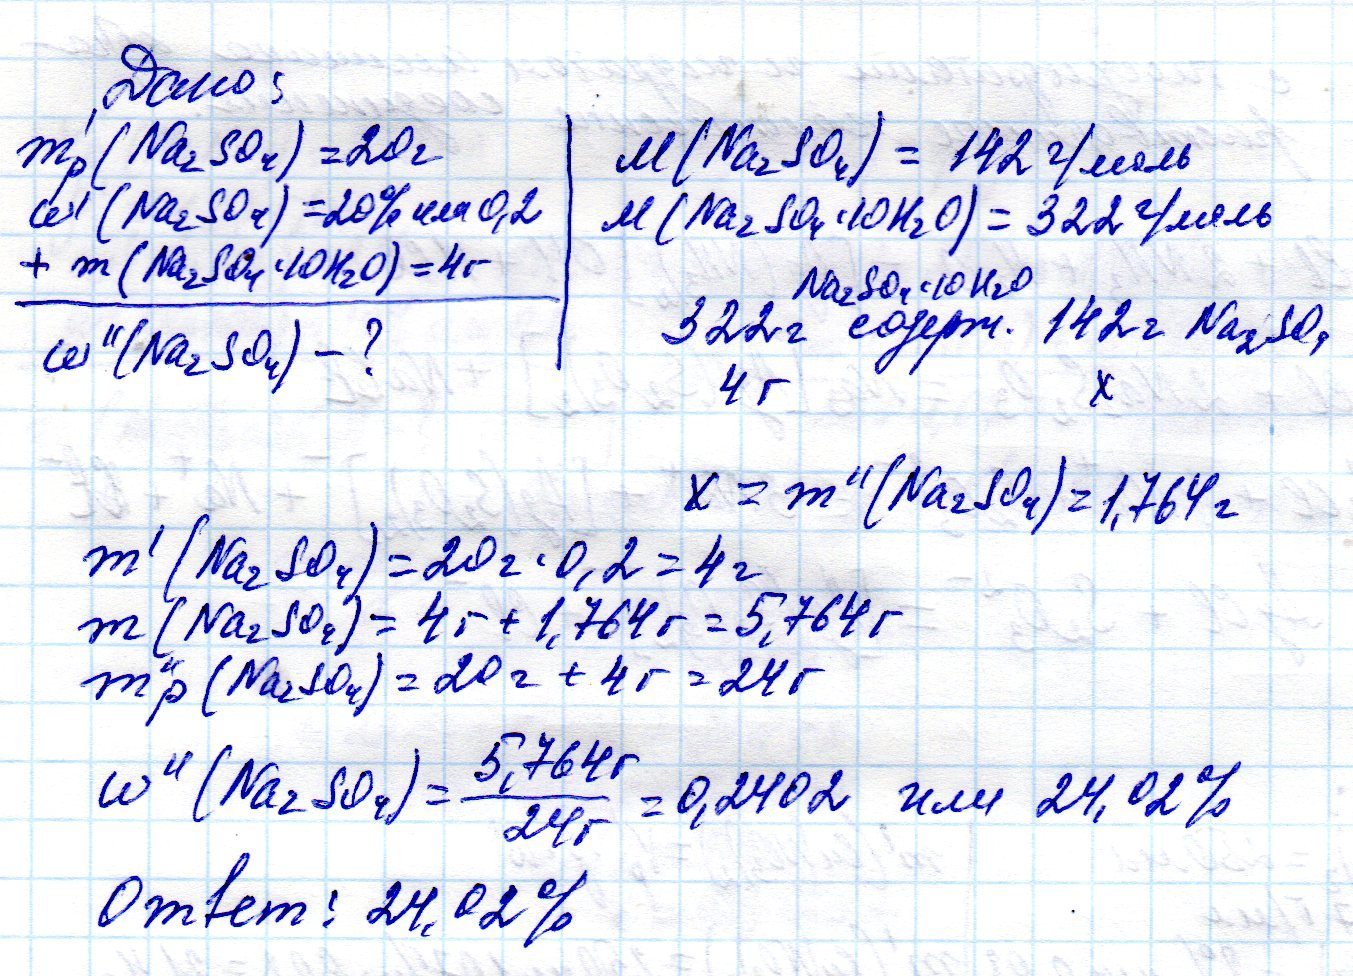 Дано:
m'р(Na₂SO₄) = 20г
ω'(Na₂SO₄) = 20% или 0,2
+ m(Na₂SO₄·10H₂O) = 4г
ω"(Na₂SO₄) – ?
M(Na₂SO₄) = 142 г/моль
M(Na₂SO₄·10H₂O) = 322 г/моль
Na₂SO₄·10H₂O
322г содерж. 142г Na₂SO₄
4г x
x = m"(Na₂SO₄) = 1,764г
m'(Na₂SO₄) = 20г·0,2 = 4г
m(Na₂SO₄) = 4г + 1,764г = 5,764г
m"р(Na₂SO₄) = 20г + 4г = 24г
ω"(Na₂SO₄) = 5,764г / 24г = 0,2402 или 24,02%
Ответ: 24,02%